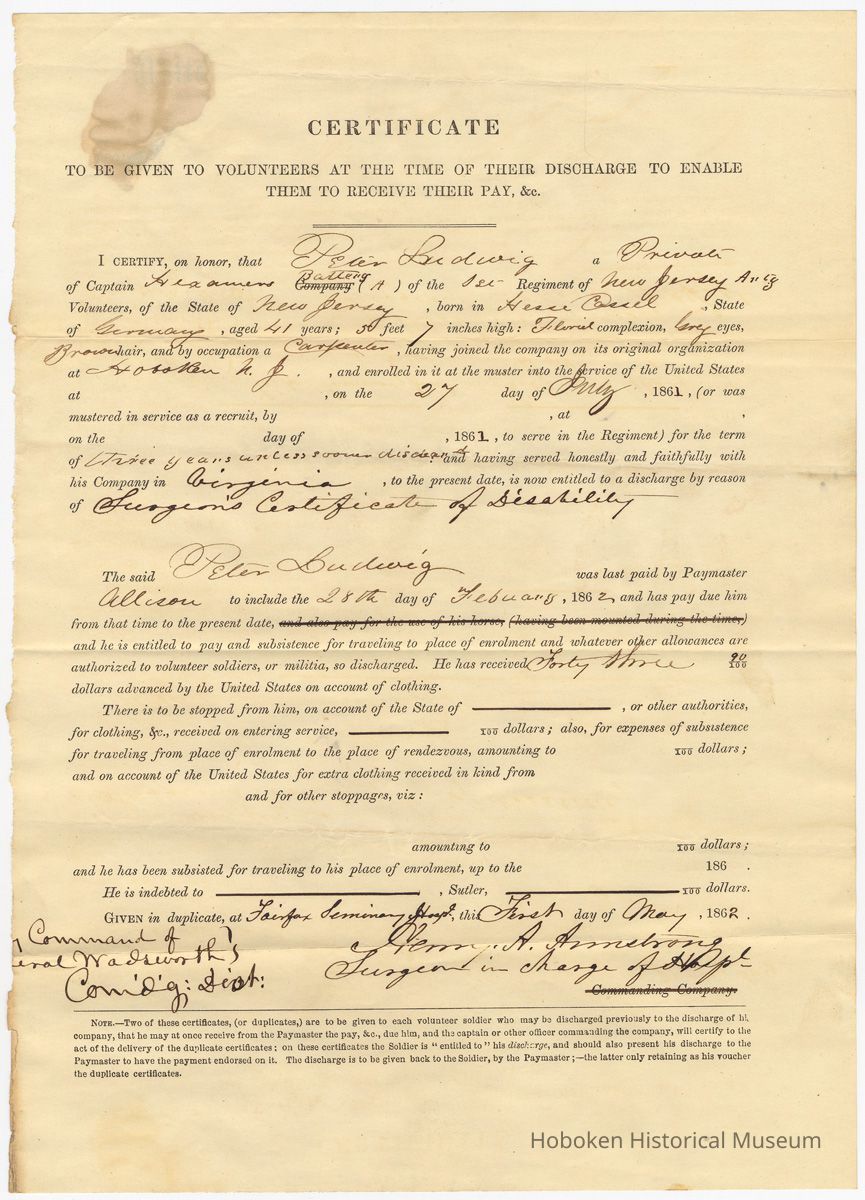 CERTIFICATE
TO BE GIVEN TO VOLUNTEERS AT THE TIME OF THEIR DISCHARGE TO ENABLE
THEM TO RECEIVE THEIR PAY, &c.
I CERTIFY, on honor, that Peter Ludwig a Private
of Captain Hexamers Battery Company (A) of the 1st Regiment of New Jersey Arty
Volunteers, of the State of New Jersey, born in Hesse Cassel, State
of Germany, aged 41 years; 5 feet 7 inches high: Florid complexion, Grey eyes,
Brown hair, and by occupation a Carpenter, having joined the company on its original organization
at Hoboken N. J., and enrolled in it at the muster into the service of the United States
at , on the 27 day of July, 1861, (or was
mustered in service as a recruit, by , at ,
on the day of , 1861, to serve in the Regiment) for the term
of three years unless sooner and having served honestly and faithfully with
his Company in Virginia, to the present date, is now entitled to a discharge by reason
of Surgeon's Certificate of Disability
The said Peter Ludwig was last paid by Paymaster
Allison to include the 28th day of February, 1862 and has pay due him
from that time to the present date, and also pay for the use of his horse, (having been mounted during the time,)
and he is entitled to pay and subsistence for traveling to place of enrolment and whatever other allowances are
authorized to volunteer soldiers, or militia, so discharged. He has received Forty three 90/100
dollars advanced by the United States on account of clothing.
There is to be stopped from him, on account of the State of , or other authorities,
for clothing, &c., received on entering service, 100 dollars; also, for expenses of subsistence
for traveling from place of enrolment to the place of rendezvous, amounting to 100 dollars;
and on account of the United States for extra clothing received in kind from
and for other stoppages, viz:
amounting to 100 dollars;
and he has been subsisted for traveling to his place of enrolment, up to the 186 .
He is indebted to , Sutler, 100 dollars.
GIVEN in duplicate, at Fairfax Seminary Hospt, this First day of May, 1862.
Command of
eral Wadsworth
Com'd'g: Dist:
Henry A. Armstrong
Surgeon in charge of Hospt
Commanding Company.
NOTE.—Two of these certificates, (or duplicates,) are to be given to each volunteer soldier who may be discharged previously to the discharge of hi.
company, that he may at once receive from the Paymaster the pay, &c., due him, and the captain or other officer commanding the company, will certify to the
act of the delivery of the duplicate certificates; on these certificates the Soldier is "entitled to" his discharge, and should also present his discharge to the
Paymaster to have the payment endorsed on it. The discharge is to be given back to the Soldier, by the Paymaster;—the latter only retaining as his voucher
the duplicate certificates.
Hoboken Historical Museum